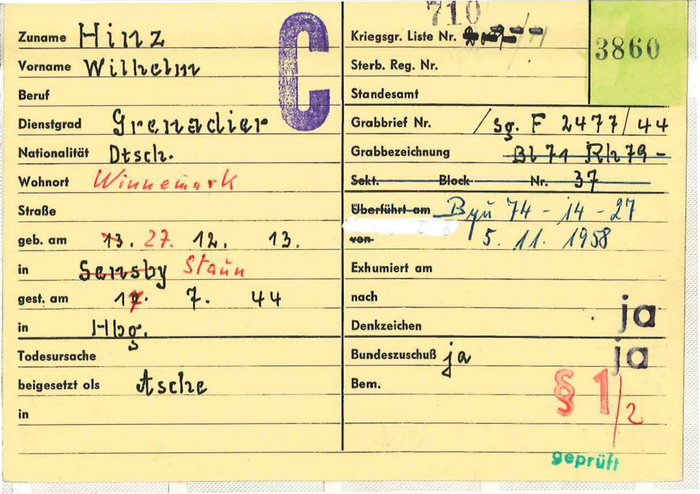 C
710
3860
Zuname Hinz
Vorname Wilhelm
Beruf
Dienstgrad Grenadier
Nationalität Dtsch.
Wohnort Winnemark
Straße
geb. am 13. 27. 12. 13.
in Sansby Staun
gest. am 17. 7. 44
in Hbg.
Todesursache
beigesetzt als Asche
in
Kriegsgr. Liste Nr.
Sterb. Reg. Nr.
Standesamt
Grabbrief Nr. /Sg. F 2477/44
Grabbezeichnung Bl 71 Rh 79-
Sekt. Block Nr. 37
Überführt am Byü 74-14-27
von 5. 11. 1958
Exhumiert am
nach
Denkzeichen ja
Bundeszuschuß ja ja
Bem. § 1/2
geprüft